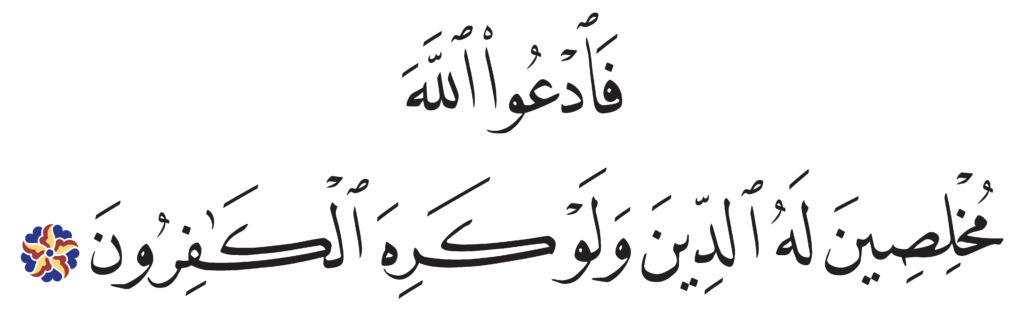 فَٱدْعُوا۟ ٱللَّهَ
مُخْلِصِينَ لَهُ ٱلدِّينَ وَلَوْ كَرِهَ ٱلْكَـٰفِرُونَ